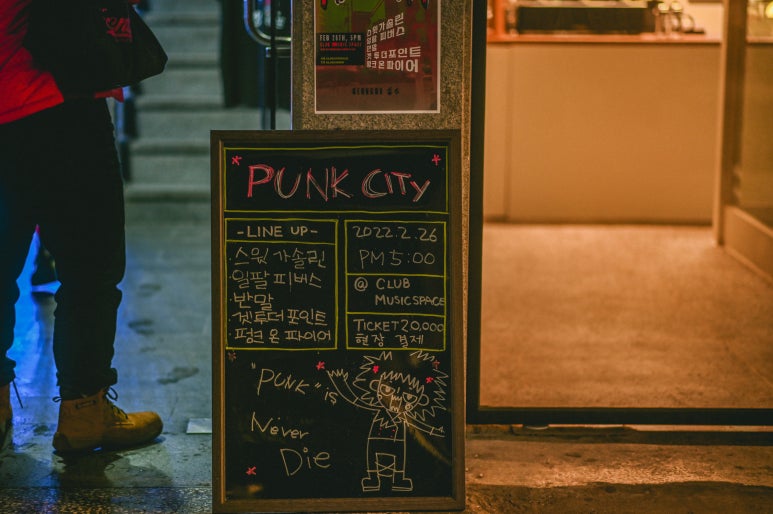 FEB 26TH, 5PM
CLUB MUSIC SPACE
스윗가솔린
일팔 피버스
반말
겟투더포인트
펑크 온 파이어
PUNK CITY
-LINE UP-
·스윗 가솔린
·일팔 피버스
·반말
·겟투더포인트
·펑크 온 파이어
2022.2.26
PM 5:00
@ CLUB
MUSICSPACE
TICKET 20,000
현장 결제
"PUNK" is
Never
Die